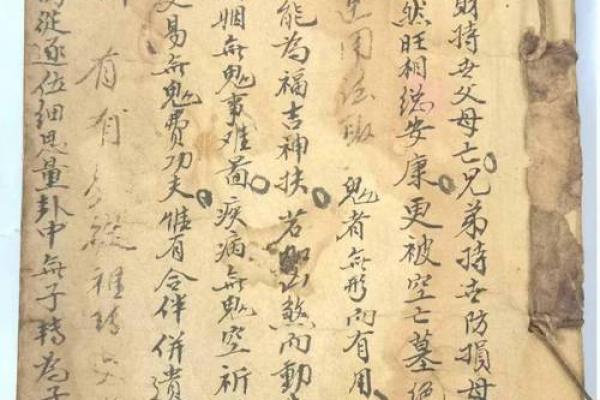 財持世父母亡兄弟持世防損母
然旺相総安康更被空亡墓絕
用 鬼者無形内有用
能為福吉神扶若加凶煞内動
姻無鬼事难啚疾病無鬼空祈
交易無鬼費功夫惟有合伴併遺
有有
從逐位細思量卦中無子轉為子